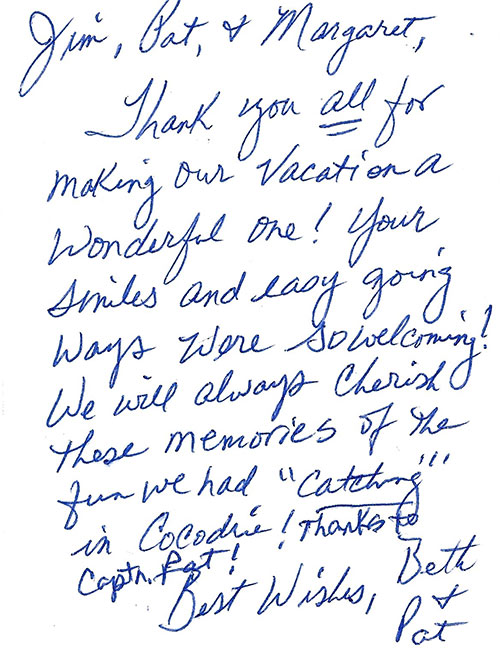 Jim, Pat, & Margaret,
Thank you all for
making our vacation a
wonderful one! Your
smiles and easy going
ways were so welcoming!
We will always cherish
these memories of the
fun we had "catching"
in Cocodrie! Thanks to
Captn. Pat!
Best Wishes, Beth
&
Pat